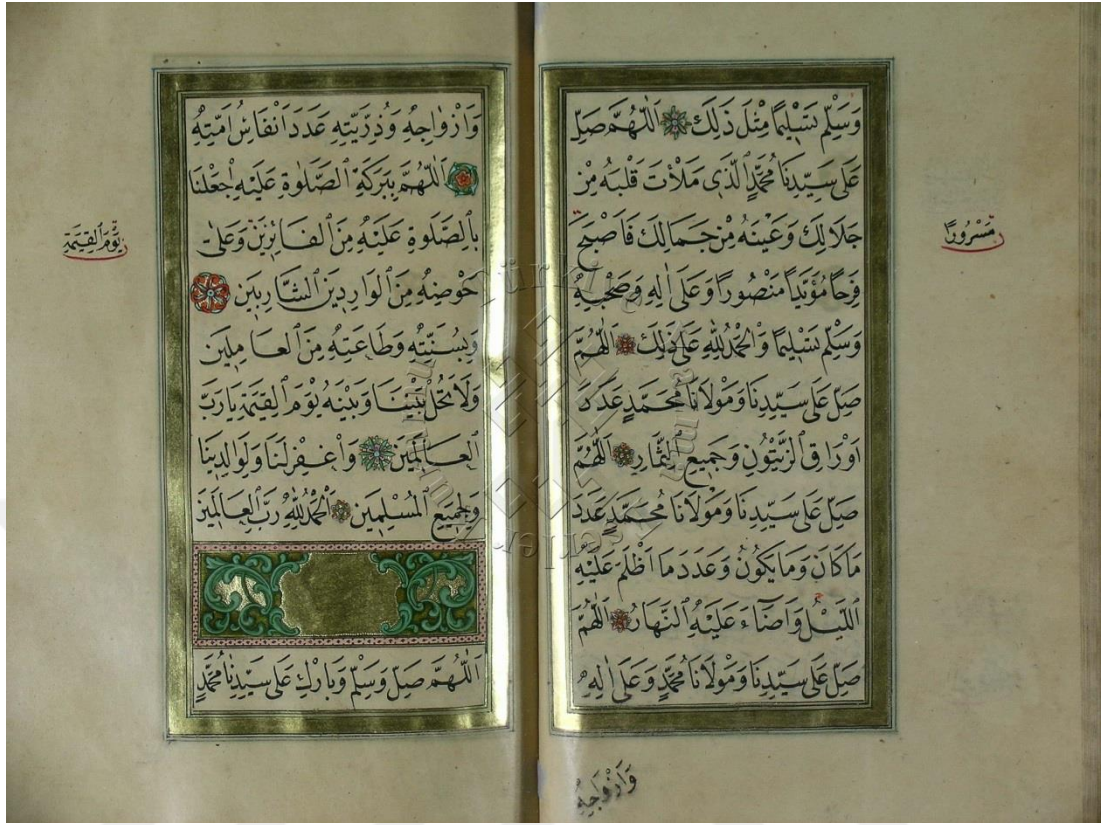 وَسَلِّمْ تَسْلِيمًا مِثْلَ ذَلِكَ اَللّٰهُمَّ صَلِّ
عَلَى سَيِّدِنَا مُحَمَّدٍ الَّذِى مَلَأْتَ قَلْبَهُ مِنْ
جَلَالِكَ وَعَيْنَهُ مِنْ جَمَالِكَ فَاَصْبَحَ
فَرِحًا مُؤَيَّدًا مَنْصُورًا وَعَلَى اٰلِهِ وَصَحْبِهِ
وَسَلِّمْ تَسْلِيمًا وَالْحَمْدُ لِلّٰهِ عَلَى ذَلِكَ اَللّٰهُمَّ
صَلِّ عَلَى سَيِّدِنَا وَمَوْلَانَا مُحَمَّدٍ عَدَدَ
اَوْرَاقِ الزَّيْتُونِ وَجَمِيعِ الثِّمَارِ اَللّٰهُمَّ
صَلِّ عَلَى سَيِّدِنَا وَمَوْلَانَا مُحَمَّدٍ عَدَدَ
مَاكَانَ وَمَايَكُونُ وَعَدَدَ مَا اَظْلَمَ عَلَيْهِ
اللَّيْلُ وَاَضَاءَ عَلَيْهِ النَّهَارُ اَللّٰهُمَّ
صَلِّ عَلَى سَيِّدِنَا وَمَوْلَانَا مُحَمَّدٍ وَعَلَى اٰلِهِ
مَسْرُورًا
وَاَزْوَاجِهِ
وَاَزْوَاجِهِ وَذُرِّيَّتِهِ عَدَدَ اَنْفَاسِ اُمَّتِهِ
اَللّٰهُمَّ بِبَرَكَةِ الصَّلٰوةِ عَلَيْهِ اجْعَلْنَا
بِالصَّلٰوةِ عَلَيْهِ مِنَ الْفَائِزِينَ وَعَلَى
حَوْضِهِ مِنَ الْوَارِدِينَ الشَّارِبِينَ
وَبِسُنَّتِهِ وَطَاعَتِهِ مِنَ الْعَامِلِينَ
وَلَا تَحُلْ بَيْنَنَا وَبَيْنَهُ يَوْمَ الْقِيٰمَةِ يَارَبَّ
الْعَالَمِينَ وَاغْفِرْ لَنَا وَلِوَالِدِينَا
وَلِجَمِيعِ الْمُسْلِمِينَ اَلْحَمْدُ لِلّٰهِ رَبِّ الْعَالَمِينَ
اَللّٰهُمَّ صَلِّ وَسَلِّمْ وَبَارِكْ عَلَى سَيِّدِنَا مُحَمَّدٍ
يَوْمَ الْقِيٰمَةِ